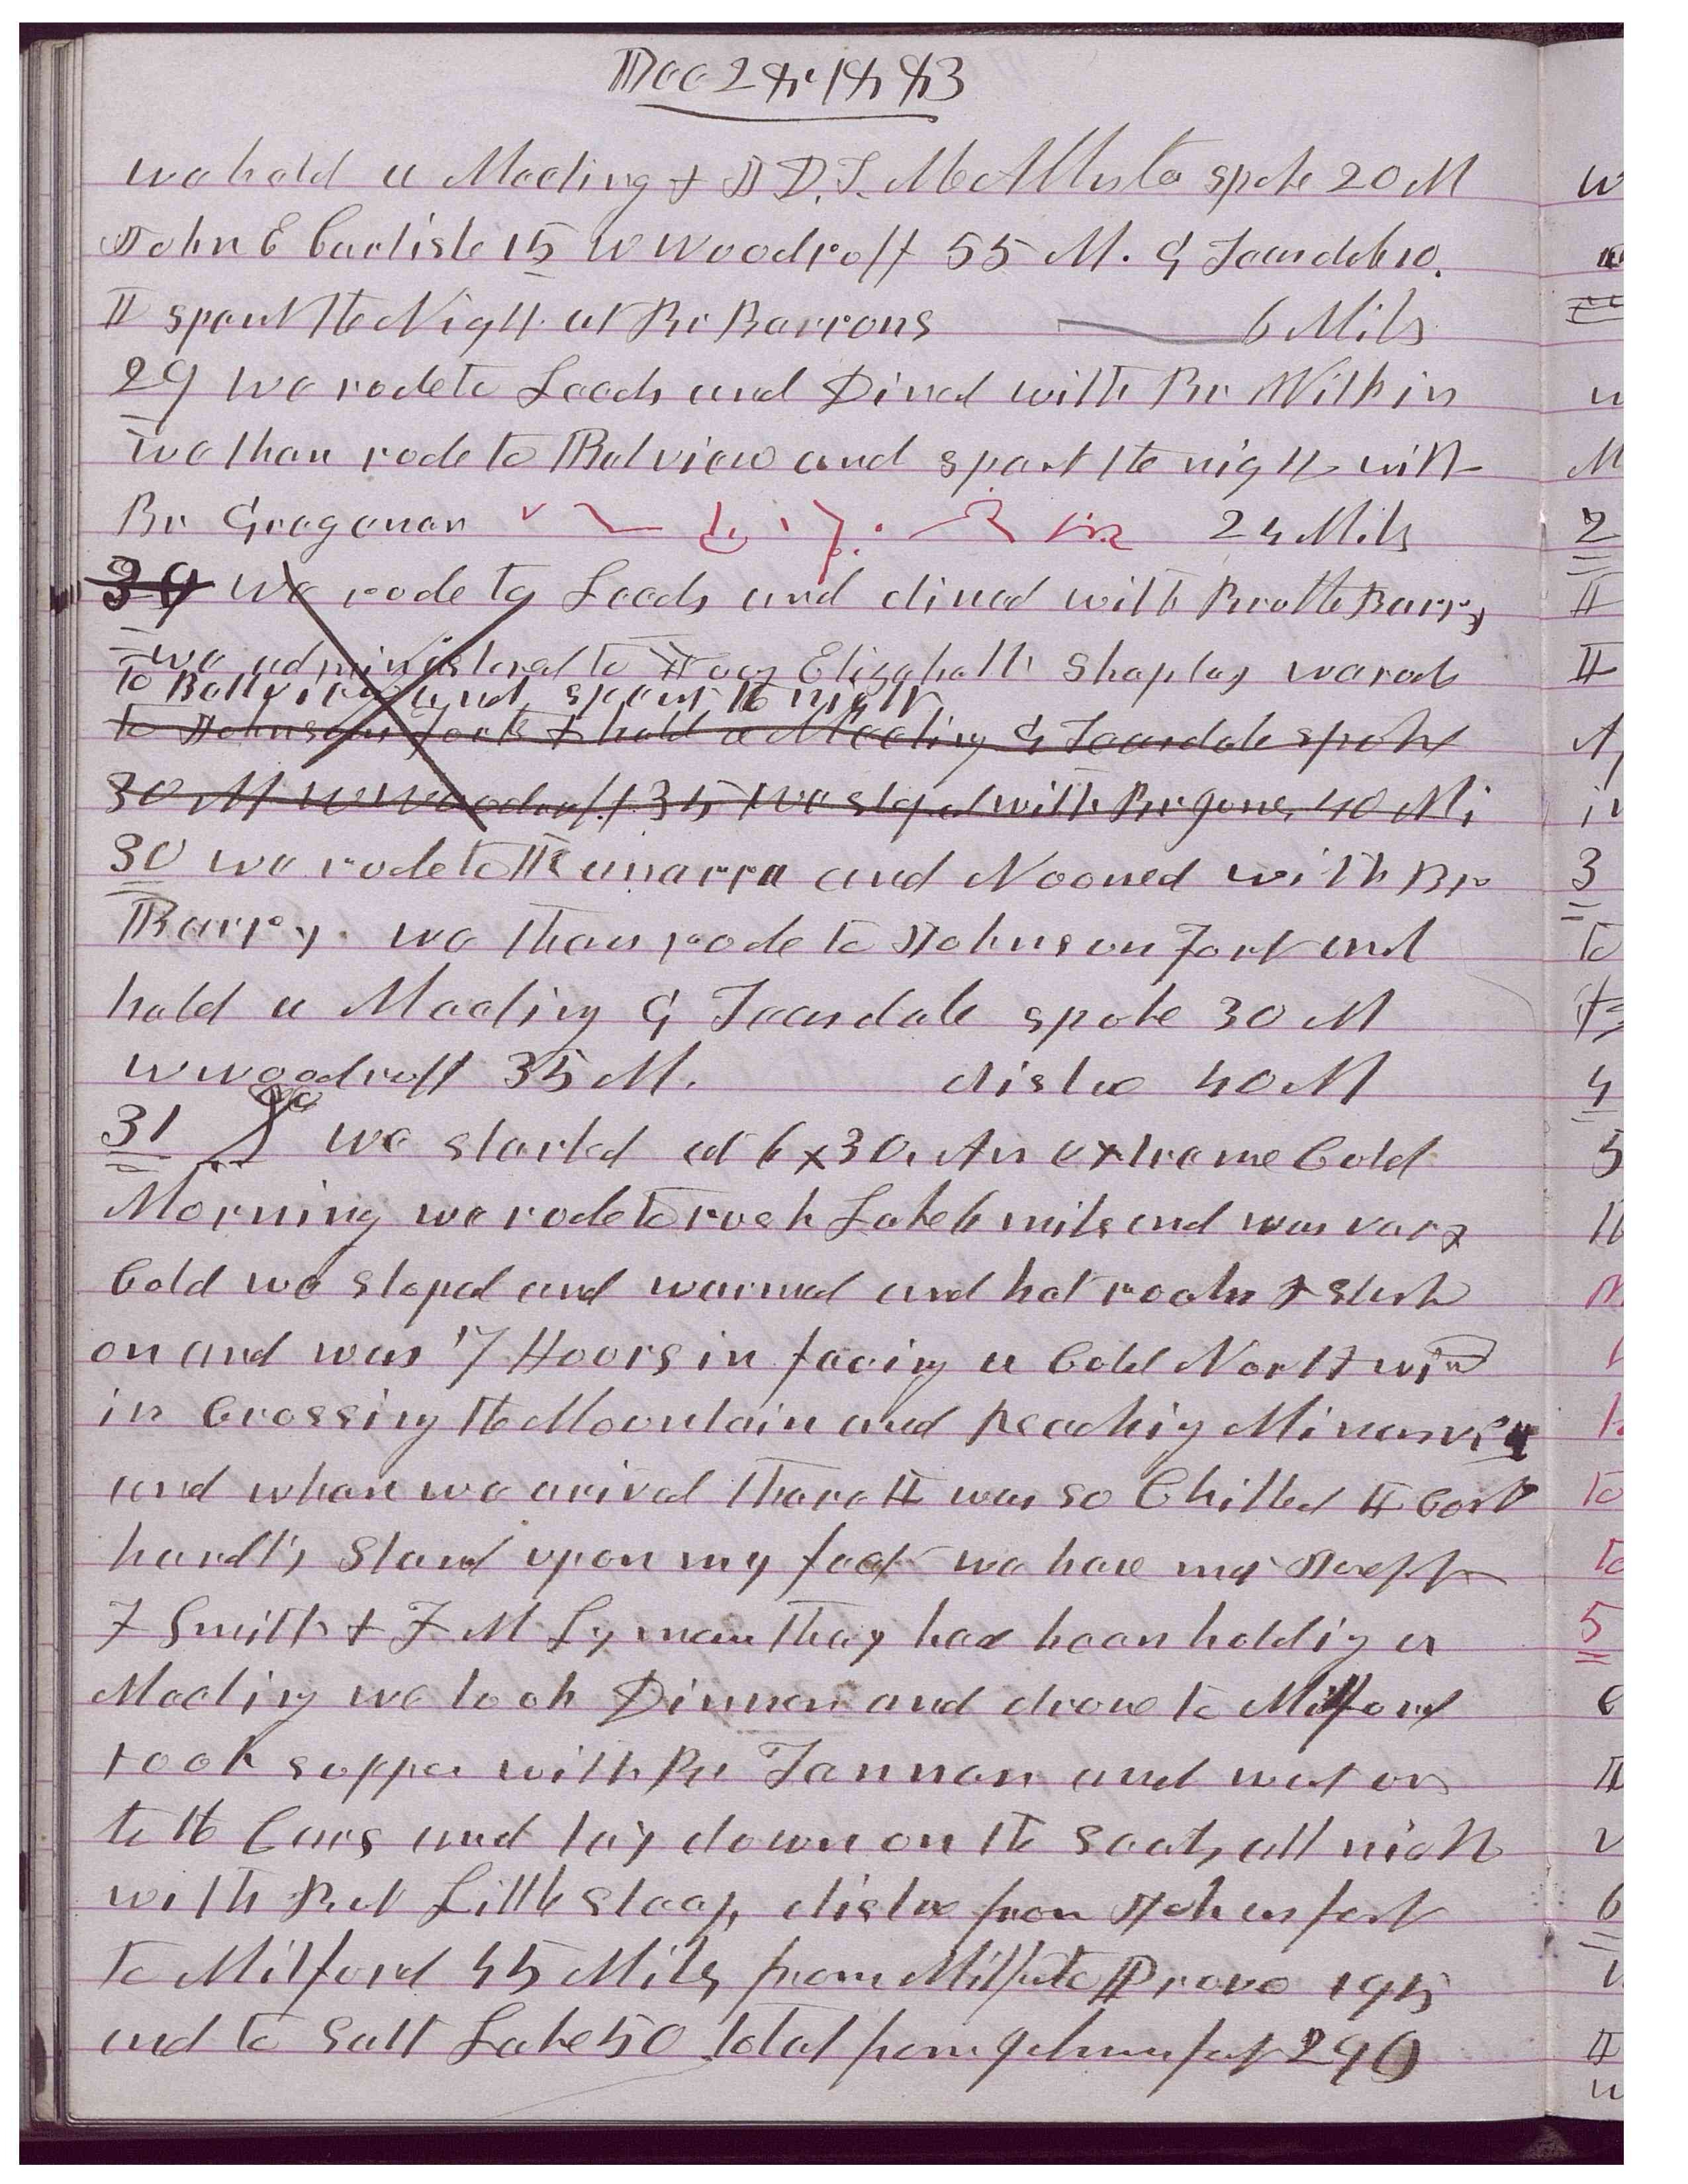 Dec 28, 1883
we held a Meeting & D. D. T. McAllister spoke 20 M
John E Carlisle 15 W Woodruff 55 M. G Teasdale 10.
I spent the Night at Br Barrons 6 Miles
29 we rode to Leeds and Dined with Br Wilkin
we then rode to Belview and spent the night with
Br Gregerson 24 Miles
we rode to Leeds and dined with Brother Barry
we administered to Elizabeth Shapley we rode
to Bellview and spent the night
to Johnson Fort & held a Meeting G Teasdale spoke
30 M W Woodruff 35 we stoped with Br Jones 40 Mi
30 we rode to Kanarra and Nooned with Br
Barry. we then rode to Johnson Fort and
held a Meeting G Teasdale spoke 30 M
W Woodruff 35 M. distce 40 M
31 we started at 6x30. An extreme Cold
Morning we rode to rush Lake 6 miles and was vary
Cold we stoped and warmed and hot rocks & start
on and was 7 Hours in faceing a Cold North wind
in Crossing the Mountain and Reaching Minersville
and when we arived there I was so Chilled I Could
hardly Stand upon my feet we here met Joseph
F Smith & F M Lyman they had been holding a
Meeting we took Dinner and drove to Milford
took supper with Br Tanner and went on
to the Cars and lay down on the seats all night
with But Little sleep, distce from Johnson fort
to Milford 45 Miles from Milford to Provo 195
and to Salt Lake 50 total from Johnson fort 290